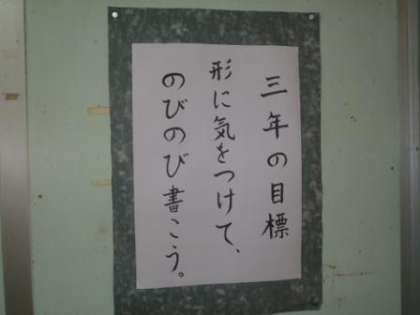 三年の目標
形に気をつけて、
のびのび書こう。